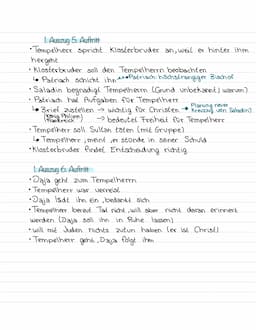 1. Aufzug 5. Auftritt
• Tempelherr spricht Klosterbruder an, weil er hinter ihm
hergeht
• Klosterbruder soll den Tempelherrn beobachten
↳ Patriarch schickt ihn → Patriarch höchstrangiger Bischof
• Saladin begnadigt Tempelherrn (Grund unbekannt, warum)
• Patriarch hat Aufgaben für Tempelherr
↳ Brief zustellen → wichtig für Christen → Planung neue Kreuzzug von Saladin)
(König Philipp) → bedeutet Freiheit für Tempelherr
• Tempelherr soll Sultan töten (mit Gruppe)
↳ Tempelherr meint, er stünde in seiner Schuld
• Klosterbruder findet Entscheidung richtig
1. Aufzug 6. Auftritt
• Daja geht zum Tempelherrn
• Tempelherr war verreist
• Daja lädt ihn ein, bedankt sich
• Tempelherr bereut Tat nicht, will aber nicht daran erinnert
werden (Daja soll ihn in Ruhe lassen)
• will mit Juden nichts zutun haben (er ist Christ)
• Tempelherr geht, Daja folgt ihm